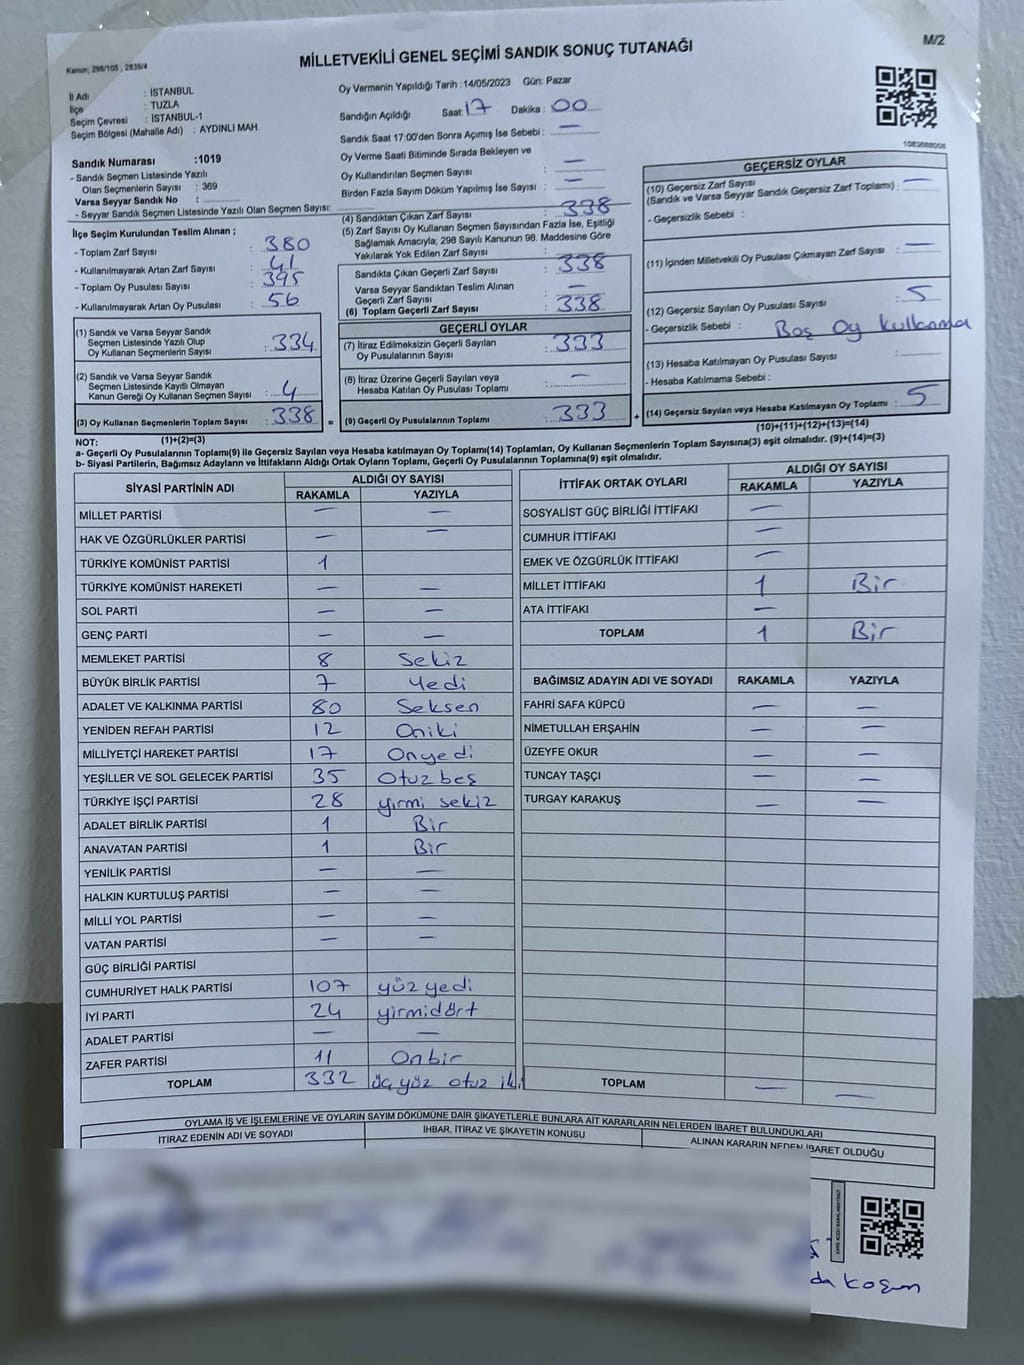 M/2
MİLLETVEKİLİ GENEL SEÇİMİ SANDIK SONUÇ TUTANAĞI
Kanun: 298/105 , 2839/4
İl Adı : İSTANBUL
İlçe : TUZLA
Seçim Çevresi : İSTANBUL-1
Seçim Bölgesi (Mahalle Adı) : AYDINLI MAH.
Oy Vermenin Yapıldığı Tarih :14/05/2023 Gün: Pazar
Sandığın Açıldığı Saat: 17 Dakika : 00
Sandık Saat 17:00'den Sonra Açımış İse Sebebi : —
Oy Verme Saati Bitiminde Sırada Bekleyen ve
Oy Kullandırılan Seçmen Sayısı : —
Birden Fazla Sayım Döküm Yapılmış İse Sayısı : —
Sandık Numarası :1019
- Sandık Seçmen Listesinde Yazılı
Olan Seçmenlerin Sayısı : 369
Varsa Seyyar Sandık No :
- Seyyar Sandık Seçmen Listesinde Yazılı Olan Seçmen Sayısı:
İlçe Seçim Kurulundan Teslim Alınan ;
- Toplam Zarf Sayısı : 380
- Kullanılmayarak Artan Zarf Sayısı : 41
- Toplam Oy Pusulası Sayısı : 395
- Kullanılmayarak Artan Oy Pusulası : 56
(1) Sandık ve Varsa Seyyar Sandık
Seçmen Listesinde Yazılı Olup
Oy Kullanan Seçmenlerin Sayısı : 334
(2) Sandık ve Varsa Seyyar Sandık
Seçmen Listesinde Kayıtlı Olmayan
Kanun Gereği Oy Kullanan Seçmen Sayısı : 4
(3) Oy Kullanan Seçmenlerin Toplam Sayısı : 338 =
(1)+(2)=(3)
(4) Sandıktan Çıkan Zarf Sayısı : 338
(5) Zarf Sayısı Oy Kullanan Seçmen Sayısından Fazla İse, Eşitliği
Sağlamak Amacıyla; 298 Sayılı Kanunun 98. Maddesine Göre
Yakılarak Yok Edilen Zarf Sayısı :
Sandıkta Çıkan Geçerli Zarf Sayısı : 338
Varsa Seyyar Sandıktan Teslim Alınan
Geçerli Zarf Sayısı : —
(6) Toplam Geçerli Zarf Sayısı : 338
GEÇERLİ OYLAR
(7) İtiraz Edilmeksizin Geçerli Sayılan
Oy Pusulalarının Sayısı : 333
(8) İtiraz Üzerine Geçerli Sayılan veya
Hesaba Katılan Oy Pusulası Toplamı : —
(9) Geçerli Oy Pusulalarının Toplamı : 333 +
GEÇERSİZ OYLAR
(10) Geçersiz Zarf Sayısı
(Sandık ve Varsa Seyyar Sandık Geçersiz Zarf Toplamı) : —
- Geçersizlik Sebebi :
(11) İçinden Milletvekili Oy Pusulası Çıkmayan Zarf Sayısı : —
(12) Geçersiz Sayılan Oy Pusulası Sayısı : 5
- Geçersizlik Sebebi : Boş oy kullanma
(13) Hesaba Katılmayan Oy Pusulası Sayısı :
- Hesaba Katılmama Sebebi :
(14) Geçersiz Sayılan veya Hesaba Katılmayan Oy Toplamı : 5
(10)+(11)+(12)+(13)=(14)
NOT:
a- Geçerli Oy Pusulalarının Toplamı(9) ile Geçersiz Sayılan veya Hesaba katılmayan Oy Toplamı(14) Toplamları, Oy Kullanan Seçmenlerin Toplam Sayısına(3) eşit olmalıdır. (9)+(14)=(3)
b- Siyasi Partilerin, Bağımsız Adayların ve İttifakların Aldığı Ortak Oyların Toplamı, Geçerli Oy Pusulalarının Toplamına(9) eşit olmalıdır.
SİYASİ PARTİNİN ADI ALDIĞI OY SAYISI
RAKAMLA YAZIYLA
MİLLET PARTİSİ — —
HAK VE ÖZGÜRLÜKLER PARTİSİ — —
TÜRKİYE KOMÜNİST PARTİSİ 1
TÜRKİYE KOMÜNİST HAREKETİ — —
SOL PARTİ — —
GENÇ PARTİ — —
MEMLEKET PARTİSİ 8 Sekiz
BÜYÜK BİRLİK PARTİSİ 7 Yedi
ADALET VE KALKINMA PARTİSİ 80 Seksen
YENİDEN REFAH PARTİSİ 12 Oniki
MİLLİYETÇİ HAREKET PARTİSİ 17 Onyedi
YEŞİLLER VE SOL GELECEK PARTİSİ 35 Otuz beş
TÜRKİYE İŞÇİ PARTİSİ 28 yirmi sekiz
ADALET BİRLİK PARTİSİ 1 Bir
ANAVATAN PARTİSİ 1 Bir
YENİLİK PARTİSİ — —
HALKIN KURTULUŞ PARTİSİ — —
MİLLİ YOL PARTİSİ — —
VATAN PARTİSİ — —
GÜÇ BİRLİĞİ PARTİSİ
CUMHURİYET HALK PARTİSİ 107 yüz yedi
İYİ PARTİ 24 yirmidört
ADALET PARTİSİ — —
ZAFER PARTİSİ 11 Onbir
TOPLAM 332 üç yüz otuz iki
İTTİFAK ORTAK OYLARI ALDIĞI OY SAYISI
RAKAMLA YAZIYLA
SOSYALİST GÜÇ BİRLİĞİ İTTİFAKI —
CUMHUR İTTİFAKI —
EMEK VE ÖZGÜRLÜK İTTİFAKI —
MİLLET İTTİFAKI 1 Bir
ATA İTTİFAKI —
TOPLAM 1 Bir
BAĞIMSIZ ADAYIN ADI VE SOYADI RAKAMLA YAZIYLA
FAHRİ SAFA KÜPCÜ — —
NİMETULLAH ERŞAHİN — —
ÜZEYFE OKUR — —
TUNCAY TAŞÇI — —
TURGAY KARAKUŞ — —
TOPLAM — —
OYLAMA İŞ VE İŞLEMLERİNE VE OYLARIN SAYIM DÖKÜMÜNE DAİR ŞİKAYETLERLE BUNLARA AİT KARARLARIN NELERDEN İBARET BULUNDUKLARI
İTİRAZ EDENİN ADI VE SOYADI İHBAR, İTİRAZ VE ŞİKAYETİN KONUSU ALINAN KARARIN NEDEN İBARET OLDUĞU